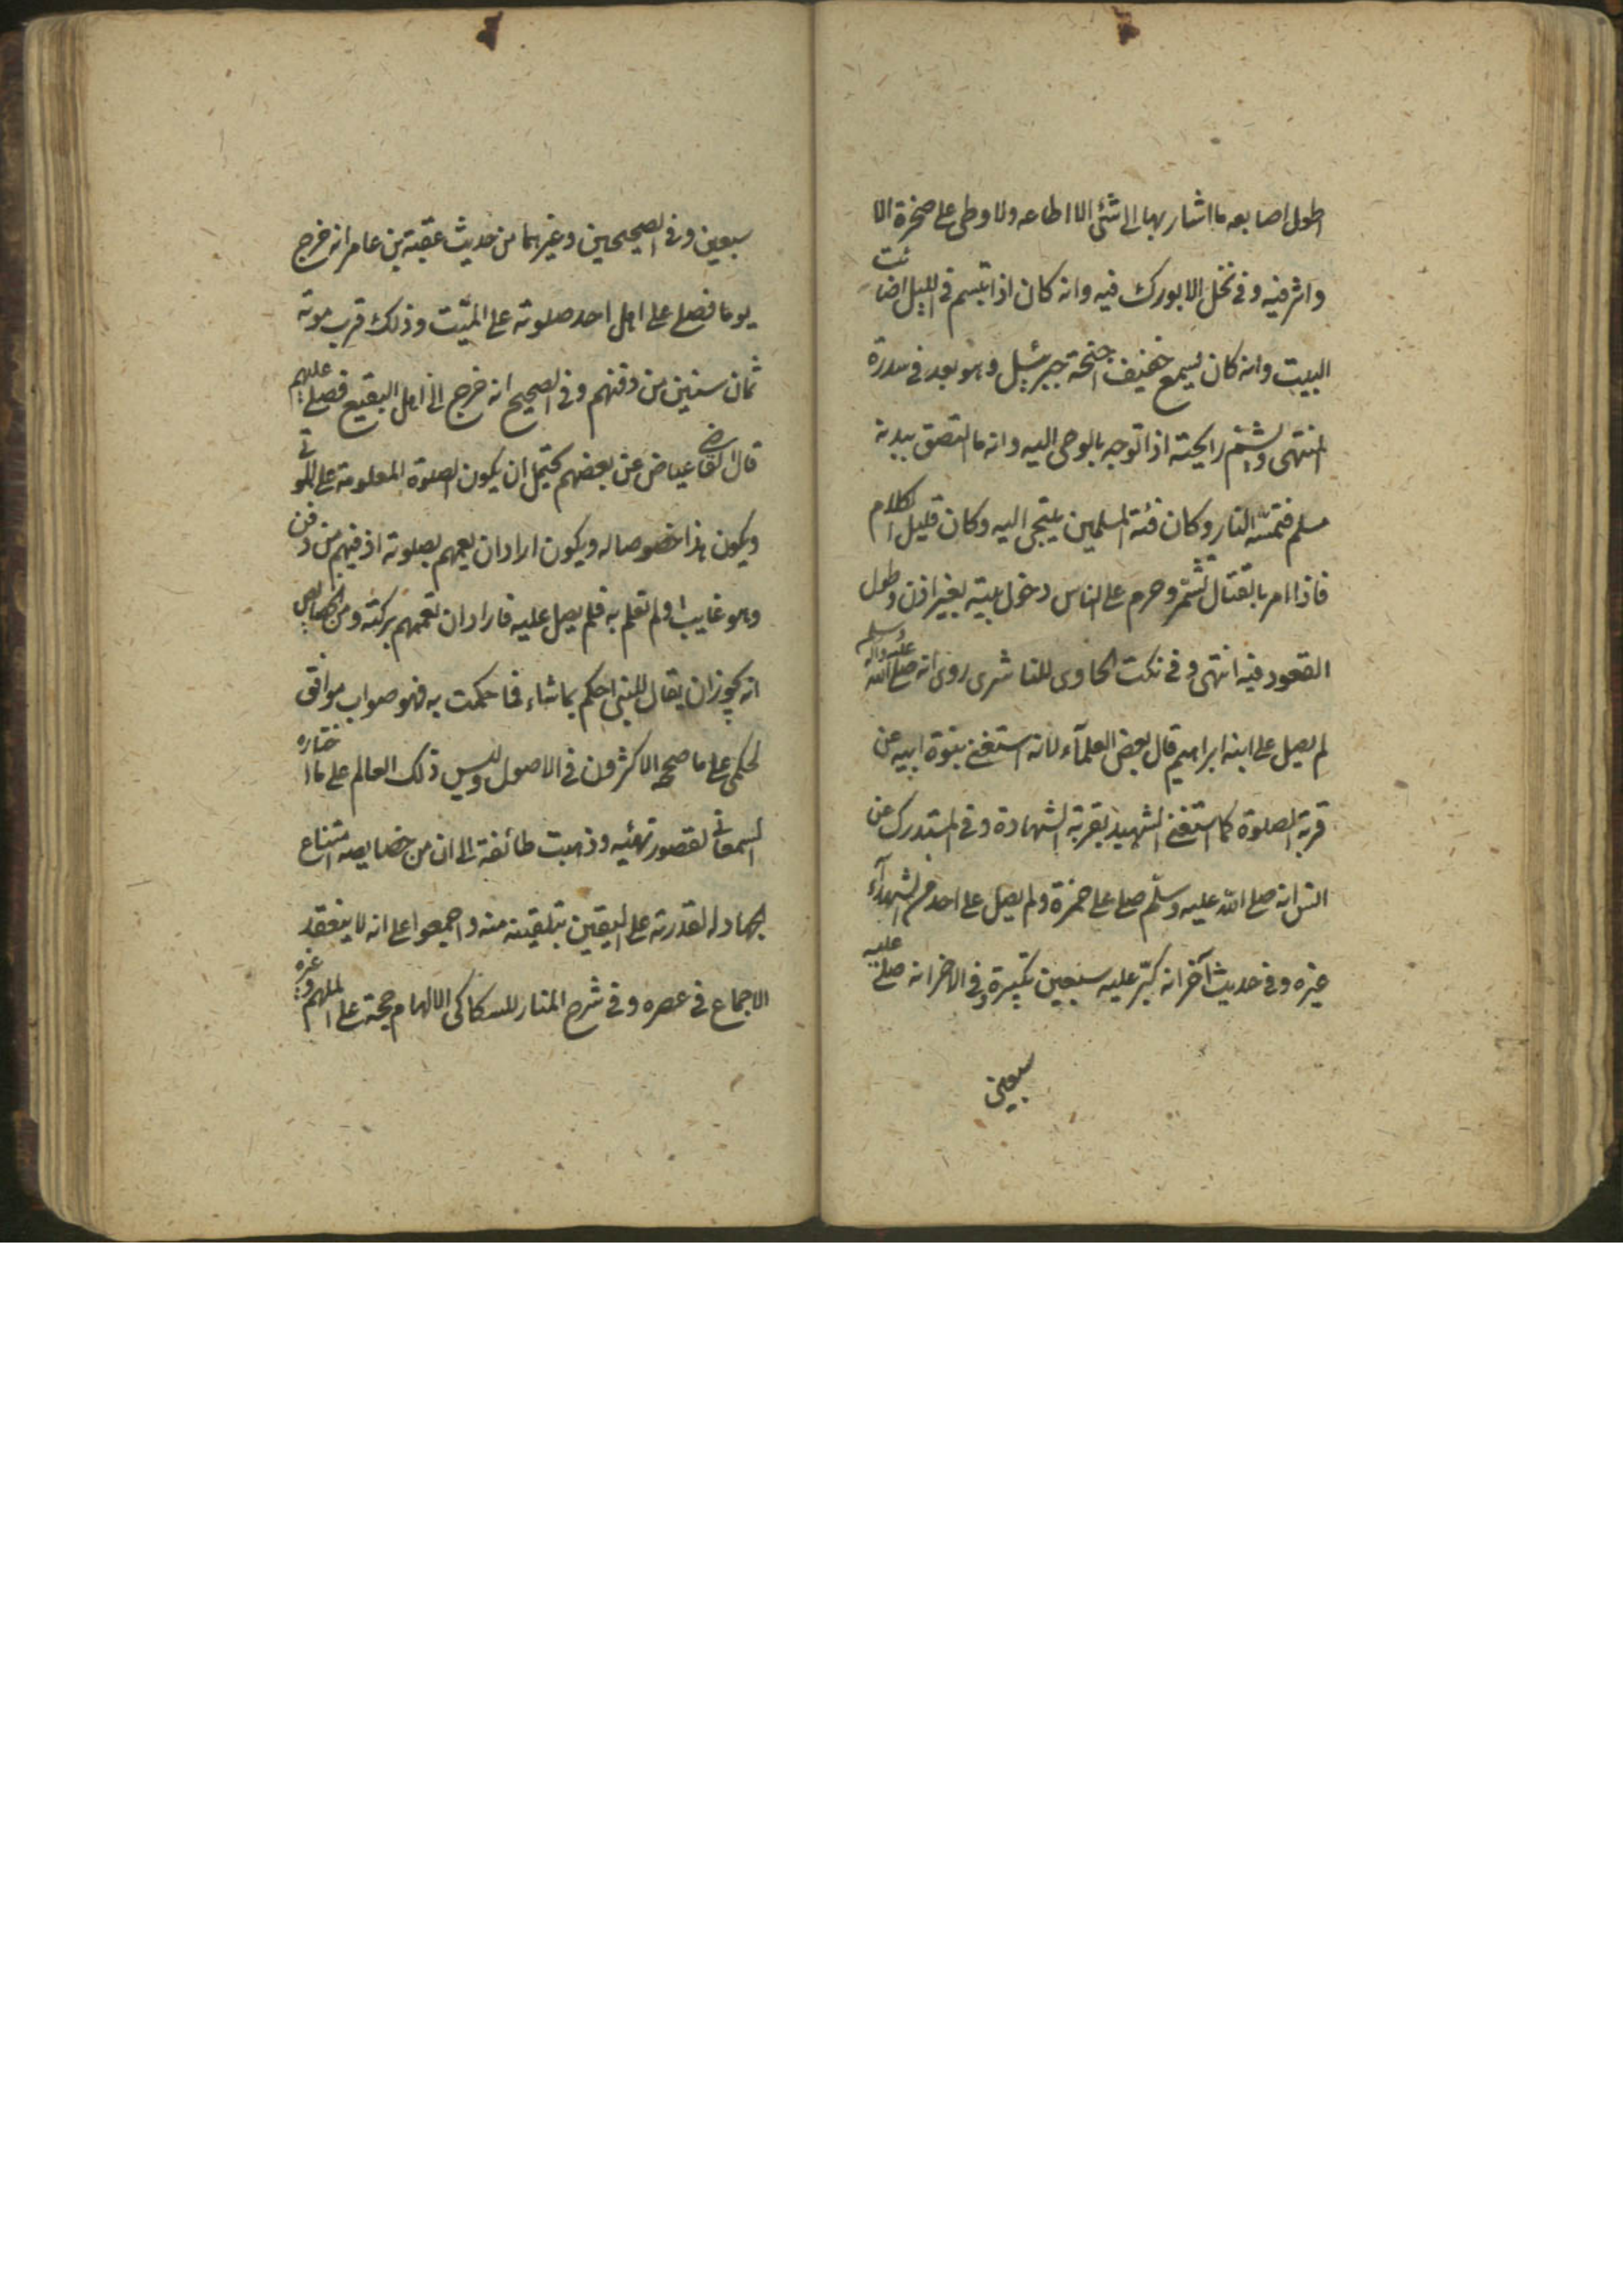 اطول اصابعه ما اشار بها الى شئ الا اطاعه ولا وطى على صخرة الا
واثر فيه وفى نخل الا بورك فيه وانه كان اذا تبسم فى الليل اضائت
البيت وانه كان يسمع خفيف اجنحة جبرئيل وهو بعد فى سدرة
المنتهى ويشم رايحته اذا توجه بالوحى اليه وانه ما التصق ببدنه
مسلم فتمسه النار وكان فئة المسلمين يلتجى اليه وكان قليل الكلام
فاذا امر بالقتال تشمر وحرم على الناس دخول بيته بغير اذن وطول
القعود فيه انتهى وفى نكت الحاوى للناشرى روى انه صلى الله عليه واله وسلم
لم يصل على ابنه ابراهيم قال بعض العلمآء لانه استغنى بنبوة ابيه عن
قربة الصلوة كما استغنى الشهيد بقربة الشهادة وفى المستدرك عن
انس انه صلى الله عليه وسلّم صلى على حمزة ولم يصل على احد من الشهدآء
غيره وفى حديث آخر انه كبّر عليه سبعين تكبيرة وفى الاخر انه صلى عليه
سبعين
سبعين وفى الصحيحين وغيرهما من حديث عقبة بن عامر انه خرج
يوما فصلى على اهل احد صلوته على الميّت وذلك قرب موته
ثمان سنين من دفنهم وفى الصحيح انه خرج الى اهل البقيع فصلى عليهم
قال القاضى عياض عن بعضهم يحتمل ان يكون الصلوة المعلومة على الموتى
ويكون هذا خصوصا له ويكون اراد ان يعمهم بصلوته اذ فيهم من دفن
وهو غايب او لم تعلم به فلم يصل عليه فاراد ان تعمهم بركته ومن الخصايص
انه يجوز ان يقال للنبى احكم بما شاء فما حكمت به فهو صواب موافق
لحكمى على ما صححه الاكثرون فى الاصول وليس ذلك العالم على ما اختاره
السمعانى لقصور رتبته وذهبت طائفة الى ان من خصايصه امتناع
الجهاد له لقدرته على اليقين بتلقينه منه واجمعوا على انه لا ينعقد
الاجماع فى عصره وفى شرح المنار للسكاكى الالهام حجة على الملهم وغيره